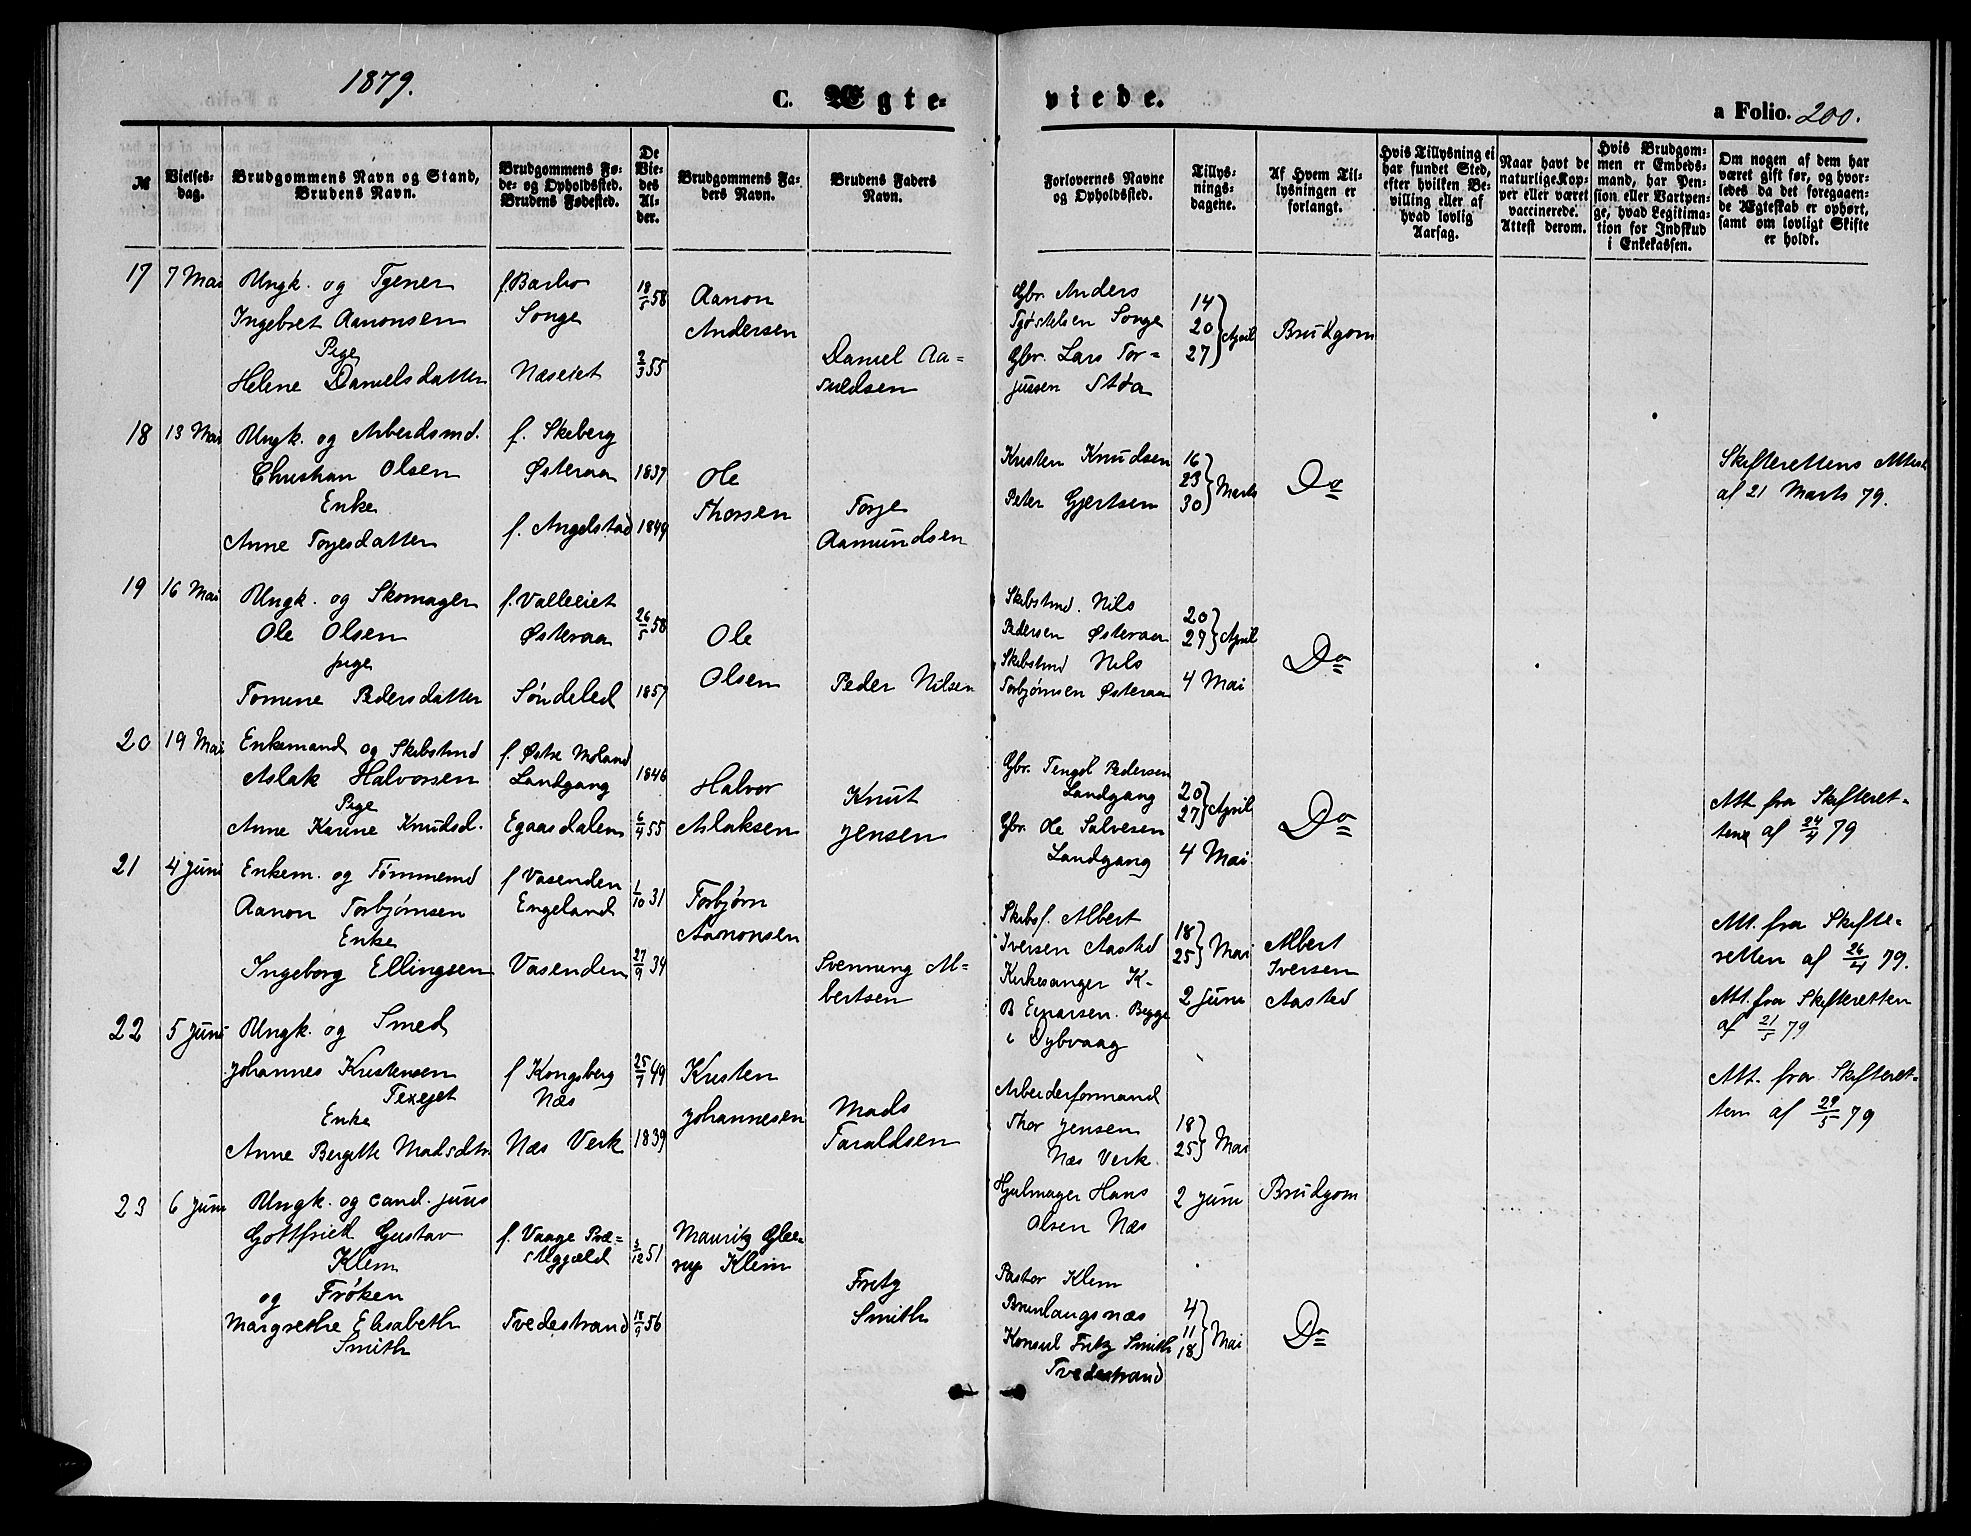 1879.
C. Ægte-
viede.
a Folio. 200.
№
Vielses-
dag.
Brudgommens Navn og Stand,
Brudens Navn.
Brudgommens Fø-
de- og Opholdssted.
Brudens Fødested.
De
Vie-
des
Al-
der.
Brudgommens Fa-
ders Navn.
Brudens Faders
Navn.
Forlovernes Navne
og Opholdssted.
Tillys-
nings-
dagene.
Af Hvem Til-
lysningen er
forlangt.
Hvis Tillysning ei
har fundet Sted,
efter hvilken Be-
villing eller af
hvad lovlig
Aarsag.
Naar havt de
naturlige Kop-
per eller været
vaccinerede.
Attest derom.
Hvis Brudgom-
men er Embeds-
mand, har Pen-
sion eller Vartpen-
ge, hvad Legitima-
tion for Indskud
i Enkekassen.
Om nogen af dem har
været gift før, og hvor-
ledes da det foregaaen-
de Ægteskab er ophørt,
samt om lovligt Skifte
er holdt.
17 7 Mai
Ungk. og Tjener
Ingebret Aanonsen
Pige
Helene Danielsdatter
f. Barbo
Songe
Næseiet
18/5 58
2/3 55
Aanon
Andersen
Daniel Aa-
suldsen
Gbr. Anders
Tjøstelsen Songe
Gbr. Lars Tor-
jussen Støa
14
20
27 } April
Brudgom
18 13 Mai
Ungk. og Arbeidsmd.
Christian Olsen
Enke
Anne Torjesdatter
f. Skeberg
Østeraa
f. Angelstad
1837
1849
Ole
Thorsen
Torje
Aamundsen
Kristen Knudsen
Peter Gjertsen
16
23
30 } Marts
Do
Skifterettens Attest
af 21 Marts 79.
19 16 Mai
Ungk. og Skomager
Ole Olsen
pige
Tomine Pedersdatter
f. Valleeiet
Østeraa
Søndeled
26/5 58
1857
Ole
Olsen
Peder Nilsen
Skibstmd. Nils
Pedersen Østeraa
Skibstmd Nils
Torbjørnsen Østeraa
20
27 } April
4 Mai
Do
20 19 Mai
Enkemand og Skibstmd
Aslak Halvorsen
Pige
Anne Karine Knudsd.
f. Østre Moland
Landgang
Egaasdalen
1846
6/4 55
Halvor
Aslaksen
Knut
Jensen
Gbr. Tengel Pedersen
Landgang
Gbr. Ole Salvesen
Landgang
20
27 } April
4 Mai
Do
Att. fra Skifteret-
tene af 24/4 79
21 4 Juni
Enkem. og Tømmermd
Aanon Torbjørnsen
Enke
Ingeborg Ellingsen
f Vasenden
Engeland
Vasenden
1/10 31
27/9 34
Torbjørn
Aanonsen
Svenning Al-
bertsen
Skibsf. Albert
Iversen Aasted
Kirkesanger K.
B Einarsen. Begge
i Dybvaag
18
25 } Mai
2 Juni
Albert
Iversen
Aasted
Att. fra Skifte-
retten af 26/4 79.
Att. fra Skifteretten
af 21/5 79
22 5 Juni
Ungk. og Smed
Johannes Kristensen
Enke
Anne Bergitte Madsdtr.
f Kongsberg
Næs
Næs Verk
25/7 49
1839
Kristen
Johannesen
Mads
Taraldsen
Arbeiderformand
Thor Jensen
Næs Verk.
Hjulmager Hans
Olsen Næs
18
25 } Mai
2 Juni
Brudgom
Att. fra Skifteret-
ten af 29/5 79
23 6 Juni
Ungk. og cand. juris
Gottfriek Gustav
Klem
og Frøken
Margrethe Elisabeth
Smith
f. Vaage Præ-
stegjæld
Tvedestrand
3/12 51
18/9 56
Mauritz Glee-
rup Klem
Fritz
Smith
Pastor Klem
Brunlangsnæs
Konsul Fritz Smith
Tvedestrand
4
11
18 } Mai
Do